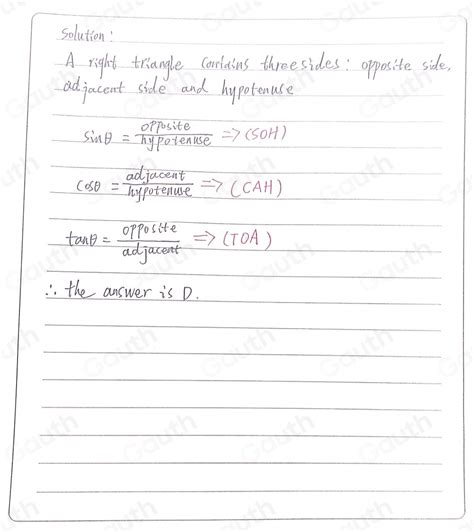 Solution:
A right triangle contains three sides: opposite side,
adjacent side and hypotenuse
sinθ = opposite/hypotenuse => (SOH)
cosθ = adjacent/hypotenuse => (CAH)
tanθ = opposite/adjacent => (TOA)
∴ the answer is D.
Gauth